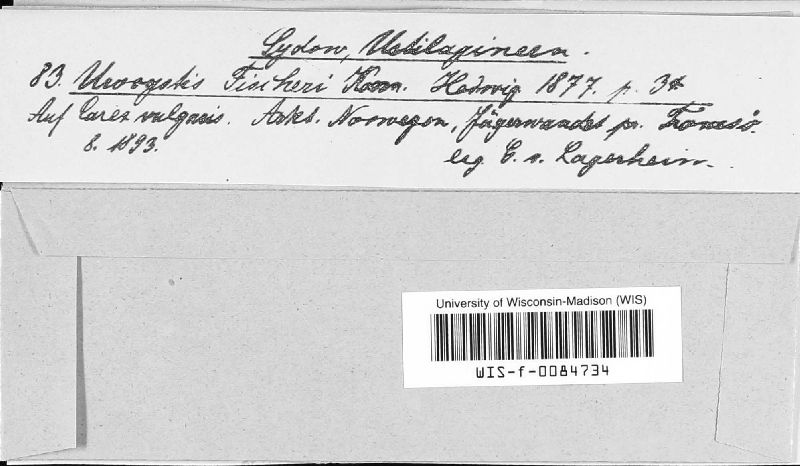 Sydow, Ustilagineen.
83. Urocystis Fischeri Körn. Hedwig 1877. p. 34
Auf Carex vulgaris. Arkt. Norwegen, Jägervandet pr. Tromsö.
8. 1893.
leg. G. v. Lagerheim.
University of Wisconsin-Madison (WIS)
WIS-f-0084734